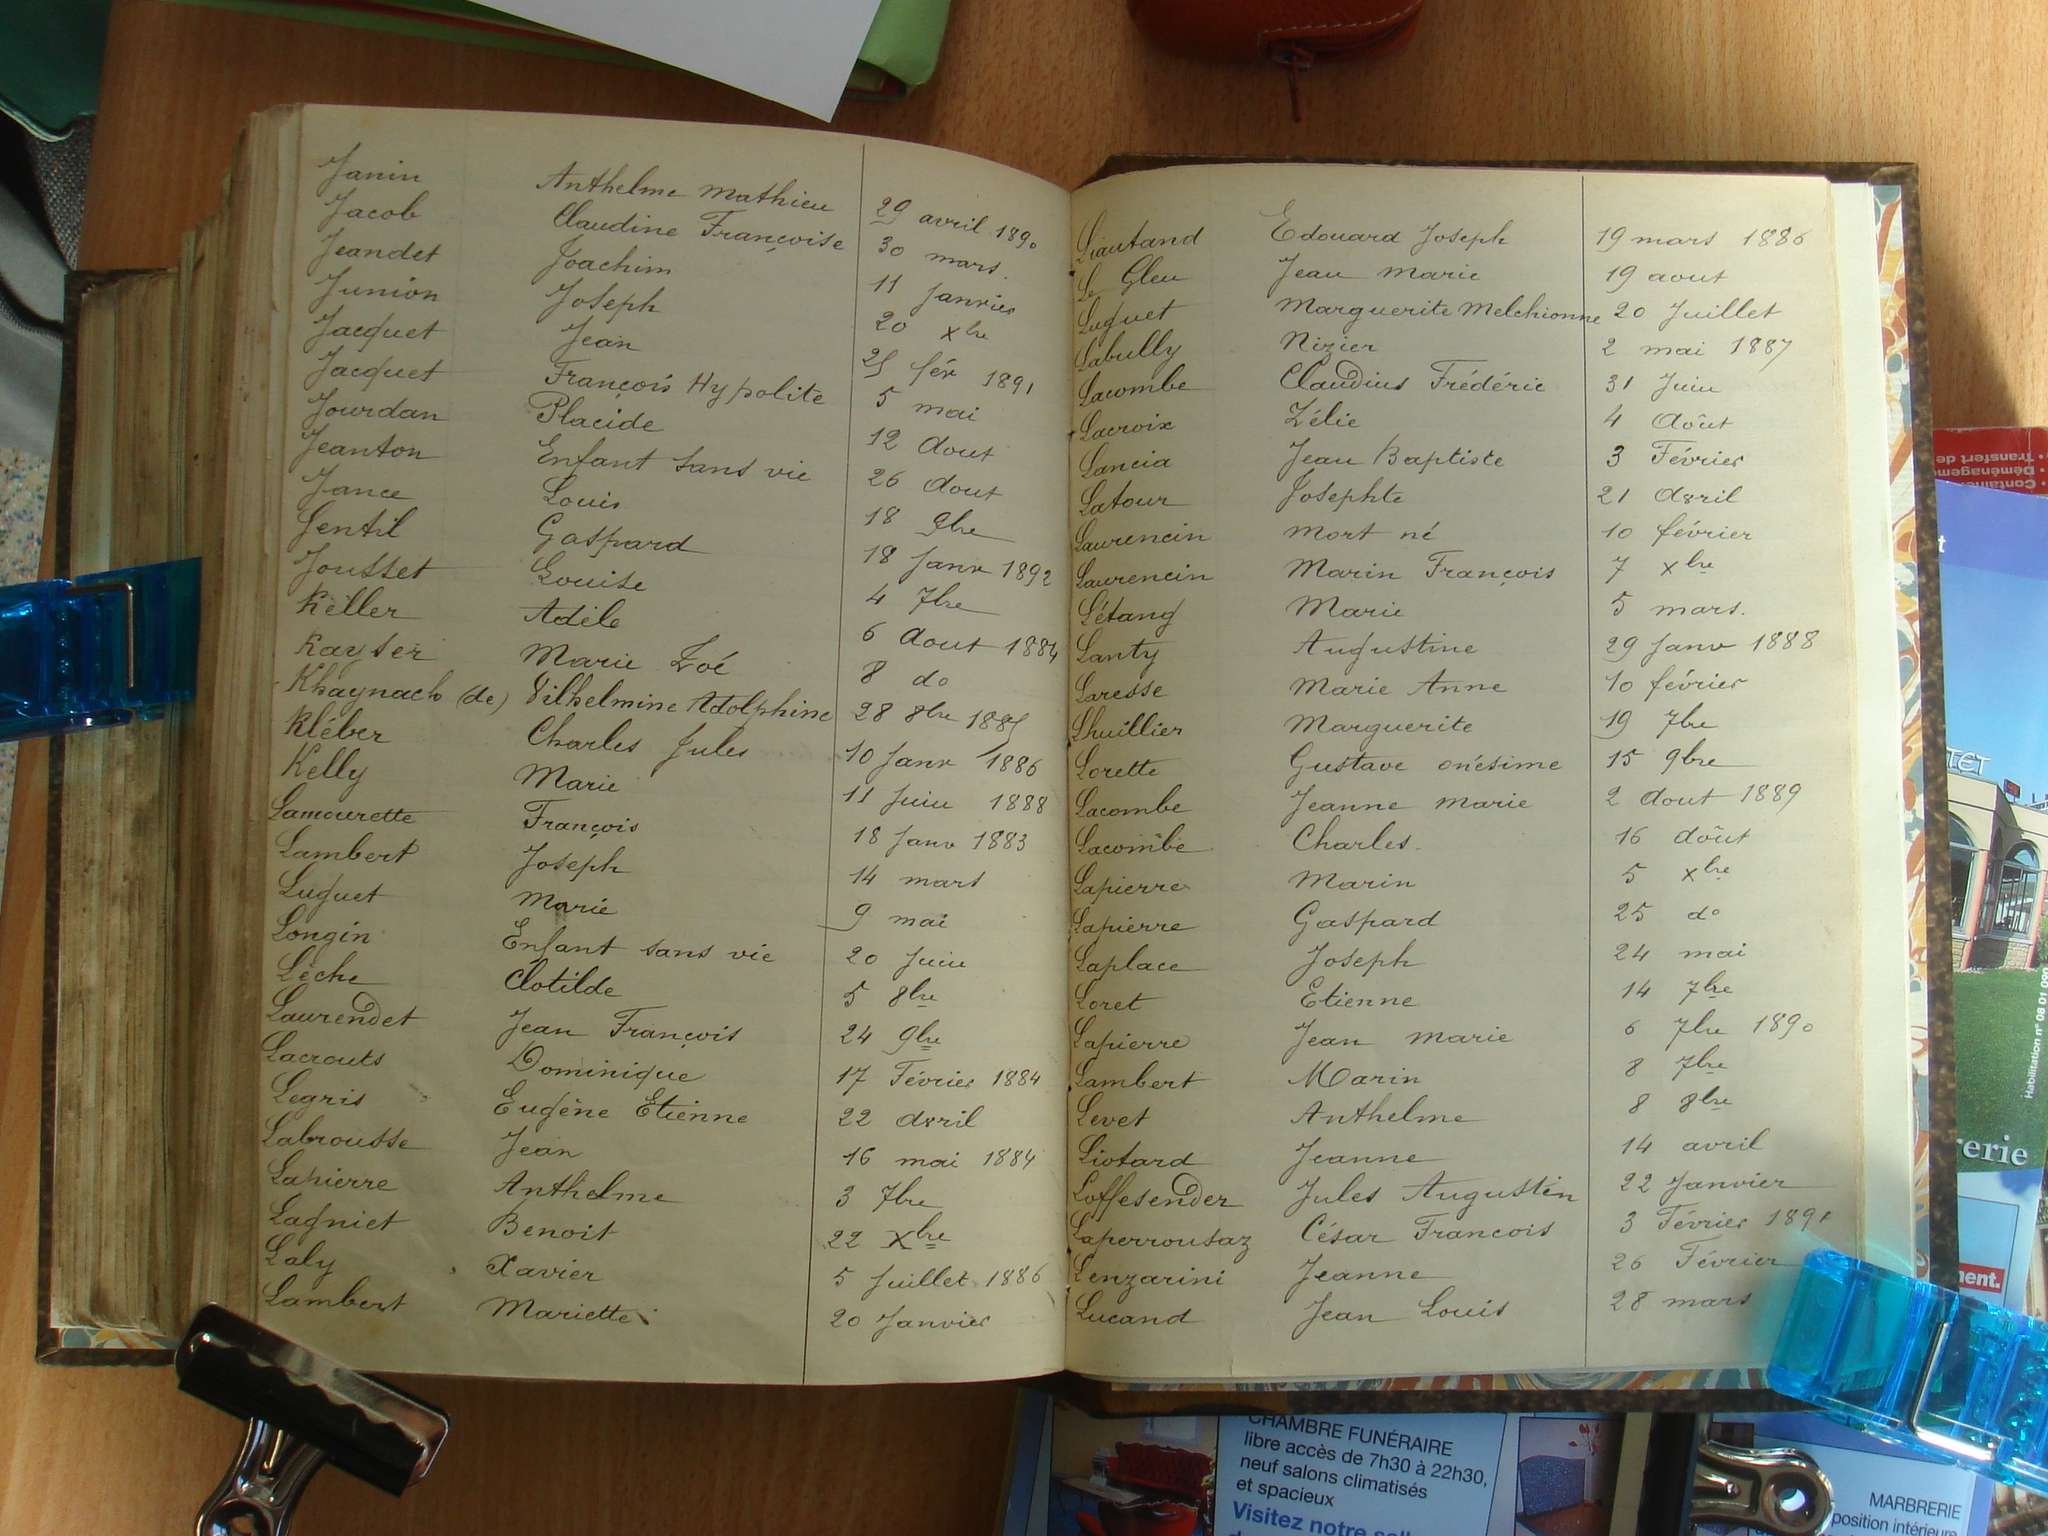 Janin Anthelme Mathieu 29 avril 1890
Jacob Claudine Françoise 30 mars
Jeandet Joachim 11 Janvier
Junion Joseph 20 xbre
Jacquet Jean 25 fév 1891
Jacquet François Hypolite 5 mai
Jourdan Placide 12 aout
Jeanton Enfant sans vie 26 aout
Jance Louis 18 9bre
Gentil Gaspard 18 Janv 1892
Jousset Louise 4 7bre
Keller Adèle 6 aout 1884
Kayser Marie Zoé 8 do
Khaynach (de) Vilhelmine Adolphine 28 8bre 1885
Kléber Charles Jules 10 Janv 1886
Kelly Marie 11 Juin 1888
Lamourette François 18 Janv 1883
Lambert Joseph 14 mars
Luguet Marie 9 mai
Longin Enfant sans vie 20 Juin
Lèche Clotilde 5 8bre
Laurendet Jean François 24 9bre
Lacrouts Dominique 17 Février 1884
Legris Eugène Etienne 22 avril
Labrousse Jean 16 mai 1884
Lapierre Anthelme 3 7bre
Lagniet Benoit 22 Xbre
Laly Xavier 5 Juillet 1886
Lambert Mariette 20 Janvier
Liautand Edouard Joseph 19 mars 1886
Le Gleu Jean Marie 19 aout
Luguet Marguerite Melchionne 20 Juillet
Labully Nizier 2 mai 1887
Lacombe Claudius Frédéric 31 Juin
Lacroix Zélie 4 Août
Lancia Jean Baptiste 3 Février
Latour Josephte 21 avril
Laurencin Mort né 10 février
Laurencin Marin François 7 xbre
Létang Marie 5 mars.
Lanty Augustine 29 Janv 1888
Laresse Marie Anne 10 février
Lhuillier Marguerite 19 7bre
Lorette Gustave onésime 15 9bre
Lacombe Jeanne Marie 2 aout 1889
Lacombe Charles 16 août
Lapierre Marin 5 xbre
Lapierre Gaspard 25 do
Laplace Joseph 24 mai
Loret Etienne 14 7bre
Lapierre Jean Marie 6 7bre 1890
Lambert Marin 8 7bre
Levet Anthelme 8 8bre
Liotard Jeanne 14 avril
Loffesender Jules Augustin 22 Janvier
Laperrousaz César Francois 3 Février 1891
Lenzarini Jeanne 26 Février
Lucand Jean Louis 28 mars
Transfert de
Déménageme
Habilitation n° 08 01 090
rerie
ment.
CHAMBRE FUNÉRAIRE
libre accès de 7h30 à 22h30,
neuf salons climatisés
et spacieux
Visitez notre
MARBRERIE
position intérieure